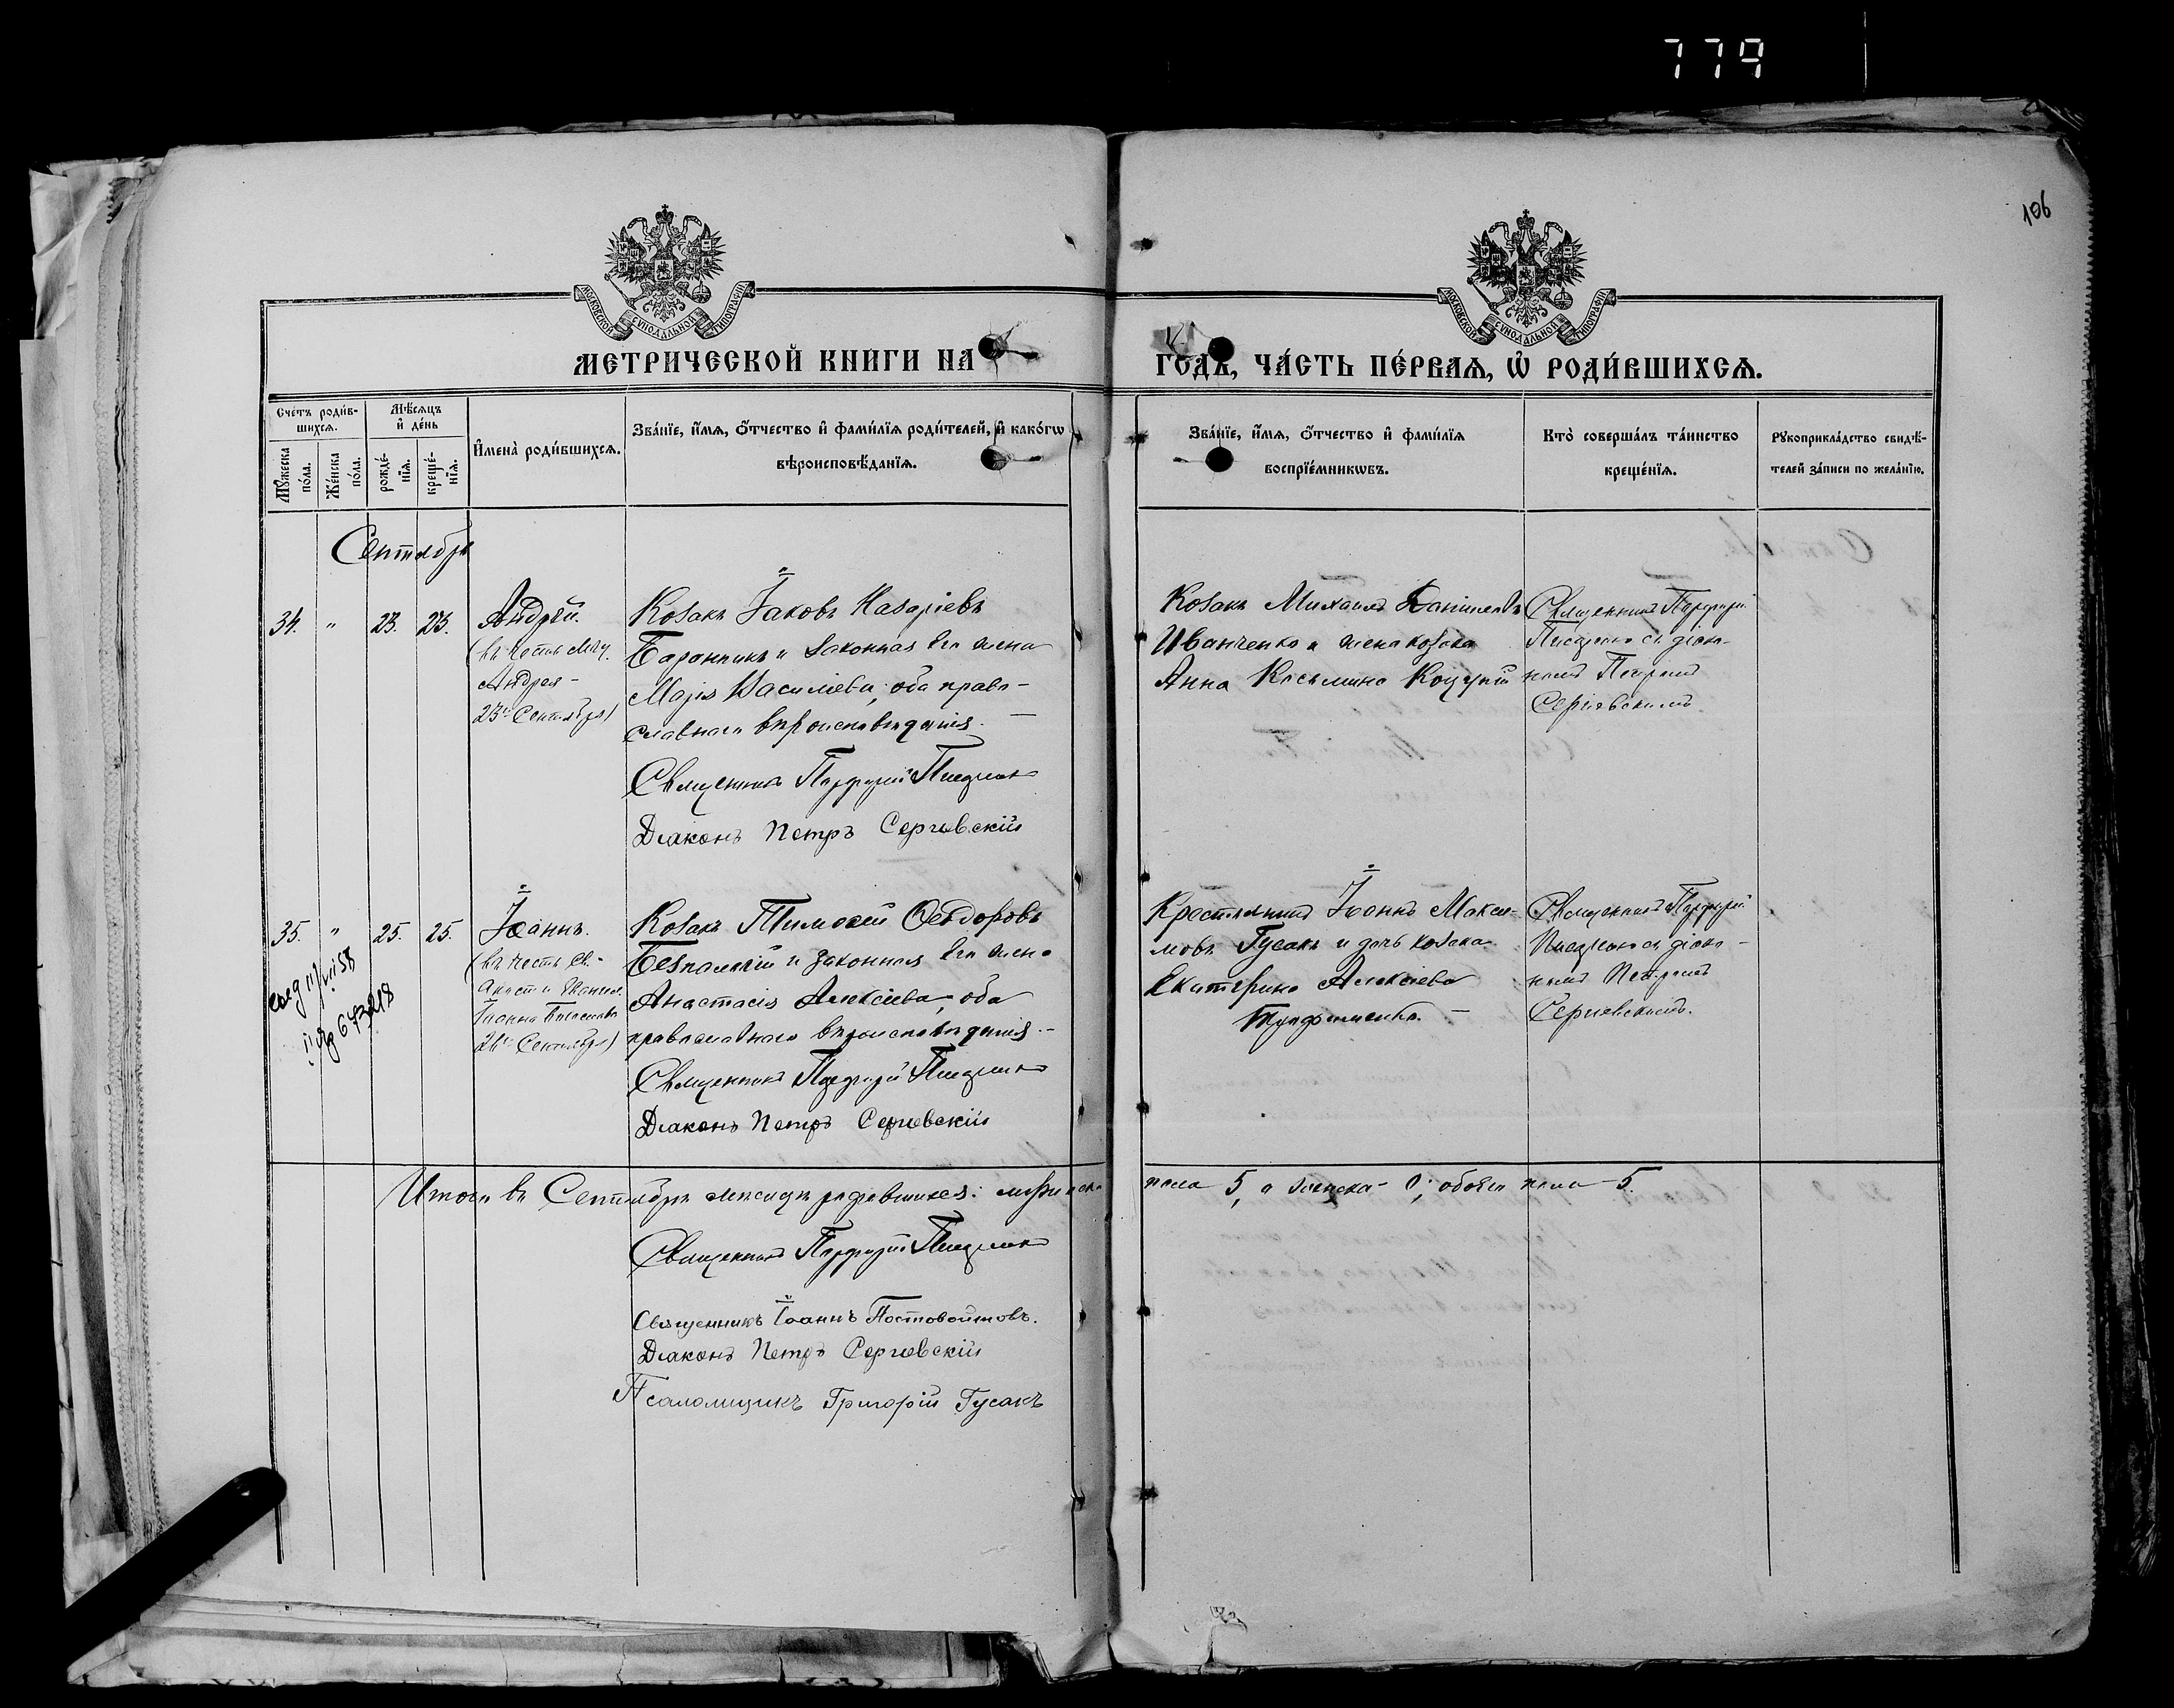 779
106
МОСКОВСКОЙ СУНОДАЛЬНОЙ ТИПОГРАФІИ
МОСКОВСКОЙ СУНОДАЛЬНОЙ ТИПОГРАФІИ
МЕТРИЧЕСКОЙ КНИГИ НА
ГОДЪ, ЧА́СТЬ ПЕ́РВАЯ, Ѡ҆ РОДИ́ВШИХСѦ.
Сче́тъ роди́в-
шихсѧ.
Мѣ́сѧцъ
и҆ де́нь
Мꙋ́жеска по́ла.
Же́нска по́ла.
рожде́-
нїѧ.
креще́-
нїѧ.
И҆мена̀ роди́вшихсѧ.
Зва́нїе, и҆́мѧ, ѻ҆́тчество и҆ фами́лїѧ роди́телей, и҆ како́гѡ
вѣроисповѣ́данїѧ.
Зва́нїе, и҆́мѧ, ѻ҆́тчество и҆ фами́лїѧ
воспрїе́мникѡвъ.
Кто̀ соверша́лъ та́инство
креще́нїѧ.
Рꙋкоприкла́дство свидѣ́-
телей за́писи по жела́нїю.
Сентябрь
34. " 23. 23.
Андрей.
(въ честь муч.
Андрея -
23го Сентября)
Козакъ Іаковъ Назаріевъ
Баранникъ и законная его жена
Марія Василіева, оба право-
славнаго вѣроисповѣданія. —
Священникъ Порфирій
Діаконъ Петръ Сергіевскій
Козакъ Михаилъ Даніиловъ
Иванченко и жена козака
Анна Косьмина
Священникъ Порфирій
съ діако-
номъ Петромъ
Сергіевскимъ.
35. " 25. 25.
Іоаннъ.
(въ честь св.
Апост. и Еванг.
Іоанна Богослова
26го Сентября)
Козакъ Тимоѳей Ѳеодоровъ
Безпалый и законная его жена
Анастасія Алексіева, оба
православнаго вѣроисповѣданія. -
Священникъ Порфирій
Діаконъ Петръ Сергіевскій
Крестьянинъ Іоаннъ Макси-
мовъ Гусакъ и дочь козака
Екатерина Алексіева
Священникъ Порфирій
съ діако-
номъ Петромъ
Сергіевскимъ.
Итого въ Сентябрѣ мѣсяцѣ родившихся: мужеска
пола 5, а женска - 0; обоего пола - 5.
Священникъ Порфирій
Священникъ Іоаннъ Постовойтовъ.
Діаконъ Петръ Сергіевскій
Псаломщикъ Григорій Гусакъ